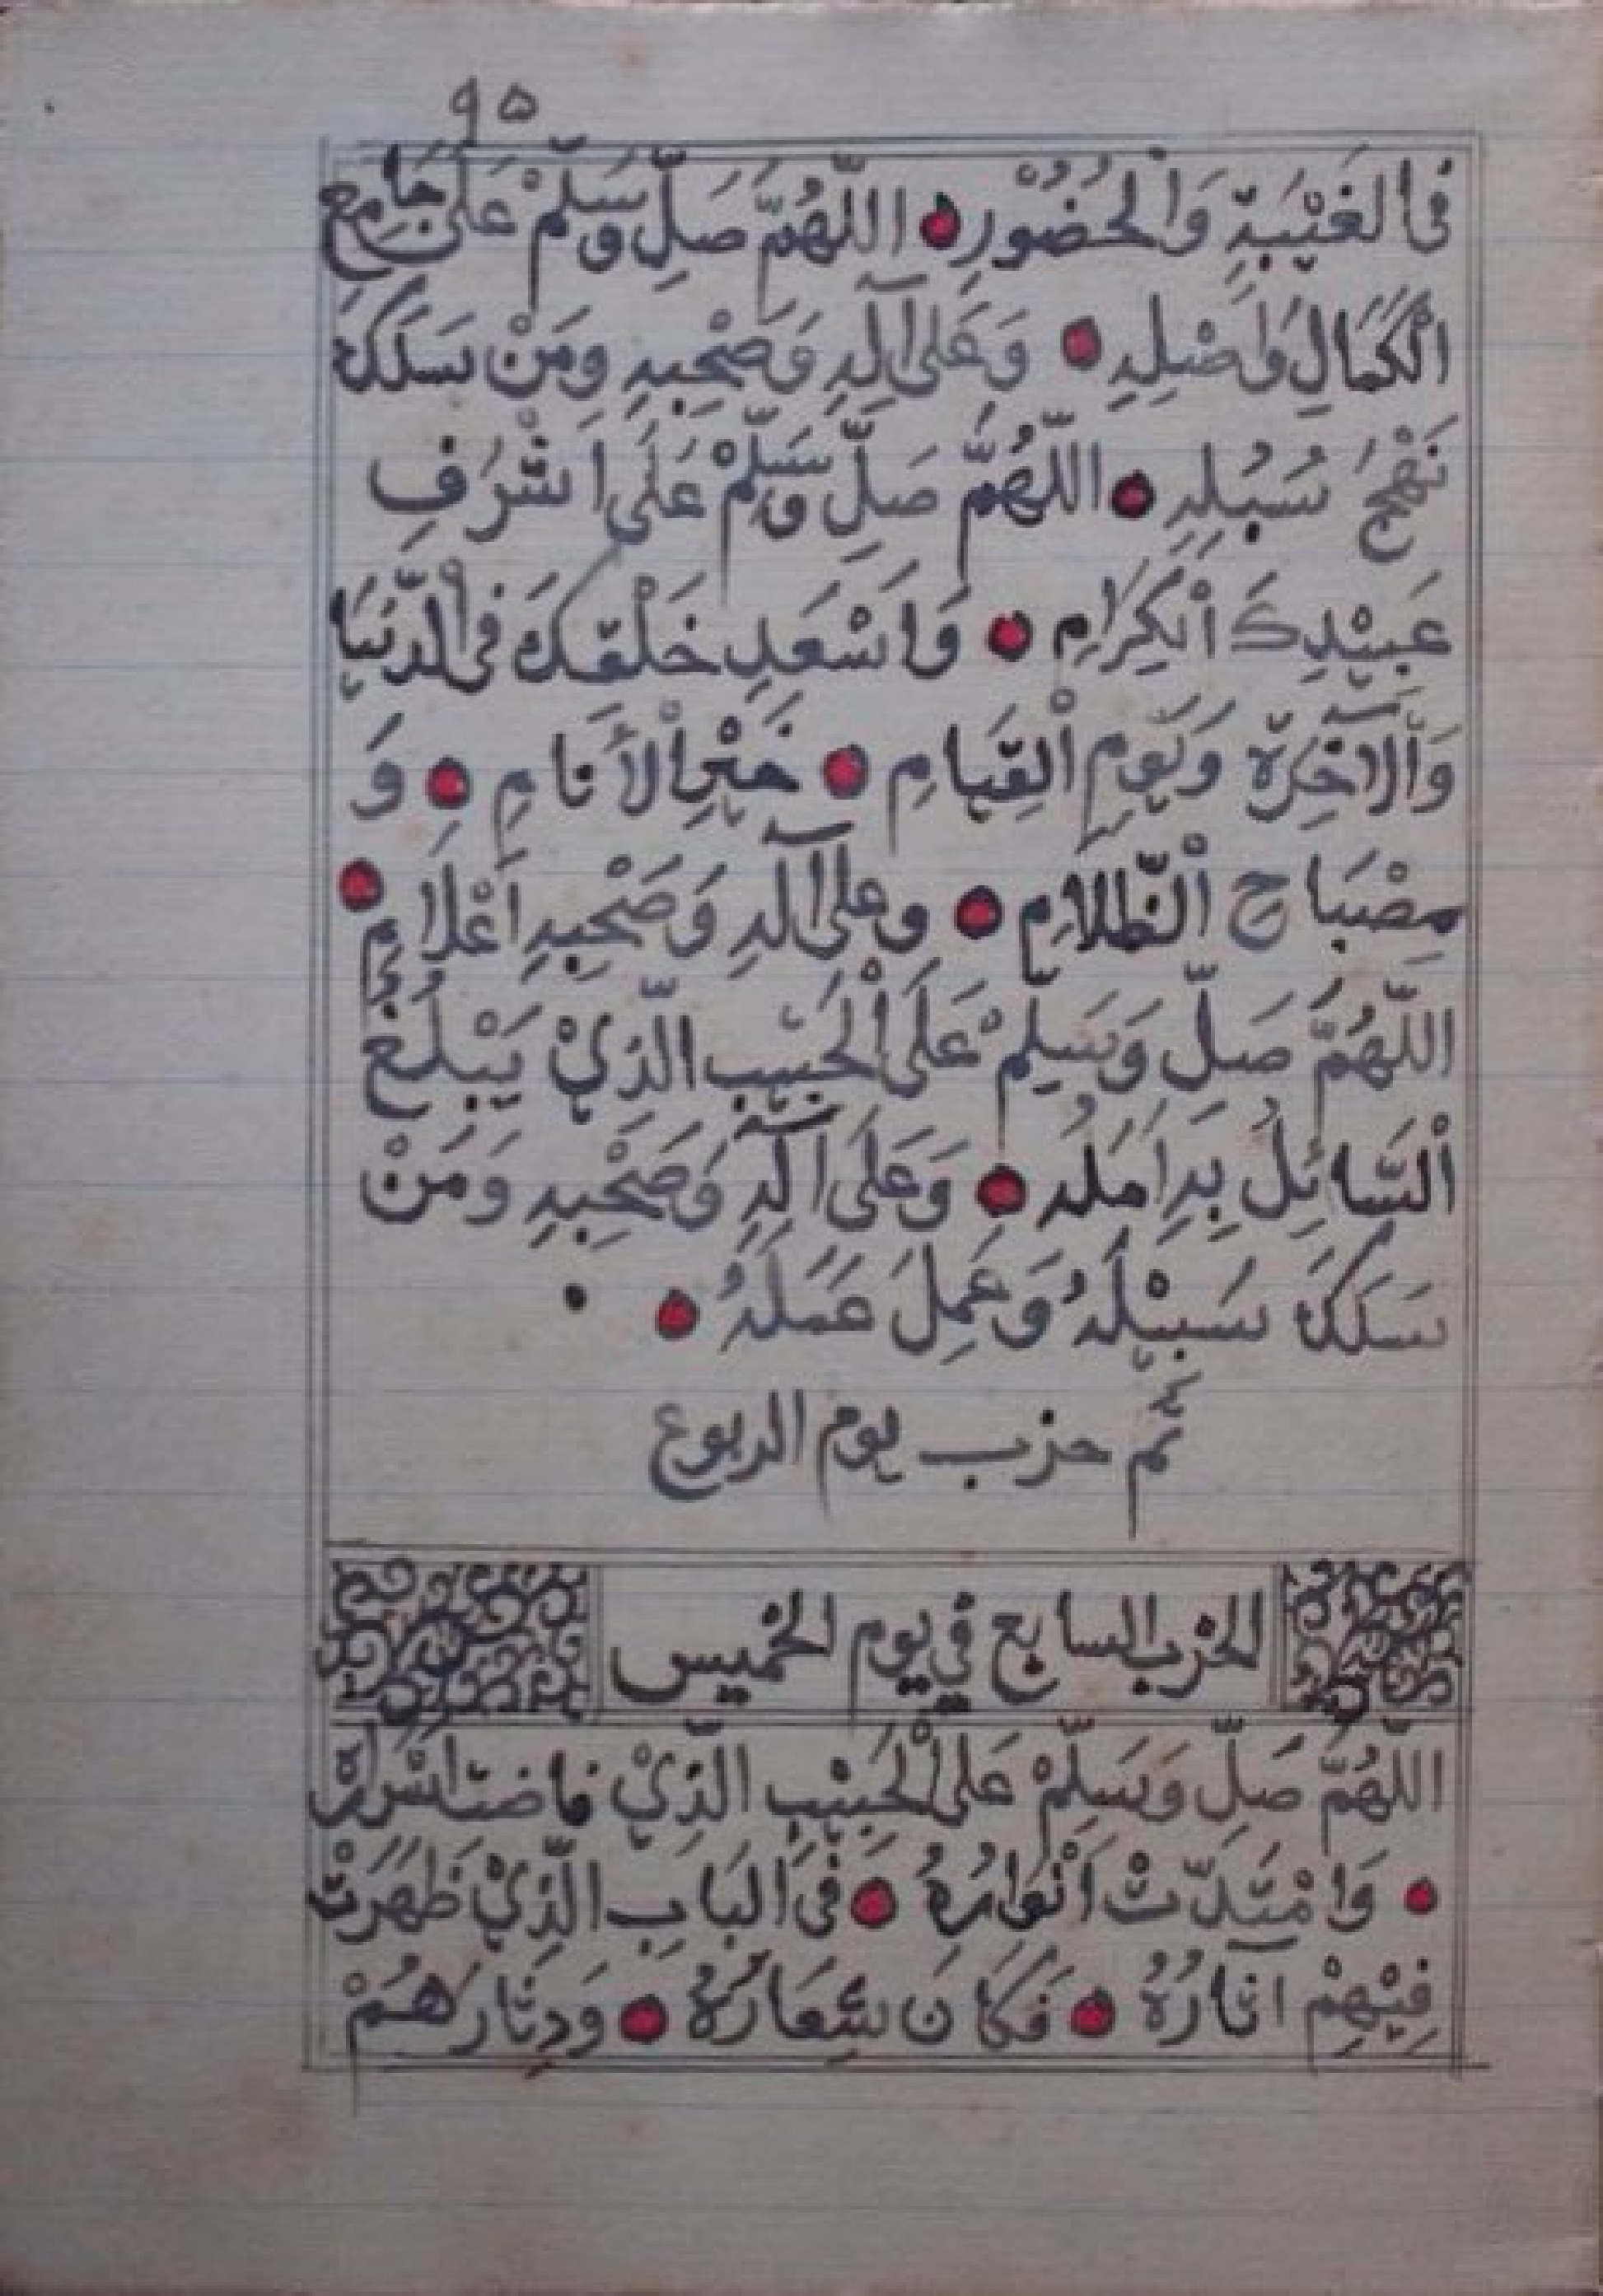 ٩٥
فِى الْغَيْبَةِ وَالْحُضُوْرِ اللّٰهُمَّ صَلِّ وَسَلِّمْ عَلَى جَامِعِ
الْكَمَالِ وَاَصْلِهِ وَعَلَى آلِهِ وَصَحْبِهِ وَمَنْ سَلَكَ
نَهْجَ سُبُلِهِ اللّٰهُمَّ صَلِّ وَسَلِّمْ عَلَى اَشْرَفِ
عَبِيْدِكَ اْلكِرَامِ وَاَسْعَدِ خَلْقِكَ فِى الدُّنْيَا
وَاْلآخِرَةِ وَيَوْمِ اْلقِيَامِ خَيْرِ اْلأَنَامِ وَ
مِصْبَاحِ الْظَّلَامِ وعَلَى آلِهِ وَصَحْبِهِ اَعْلَامِ
اللّٰهُمَّ صَلِّ وَسَلِّمْ عَلَى الْحَبِيْبِ الَّذِيْ يَبْلُغُ
اْلسَّائِلُ بِهِ اَمَلَهُ وَعَلَى آلِهِ وَصَحْبِهِ وَمَنْ
سَلَكَ سَبِيْلَهُ وَعَمِلَ عَمَلَهُ
تم حزب يوم الربوع
الحزب السابع في يوم الخميس
اللّٰهُمَّ صَلِّ وَسَلِّمْ عَلَى الْحَبِيْبِ الَّذِيْ فاضت اَسْرَارُهْ
وَامْتَدَّتْ اَنْوَارُهُ فِى الْبَابِ الَّذِيْ ظَهَرَتْ
فِيْهِمْ آثَارُهُ فَكَانَ شِعَارُهُ وَدِثَارَهُمْ